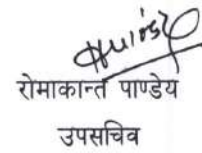 रोमाकान्त पाण्डेय
उपसचिव